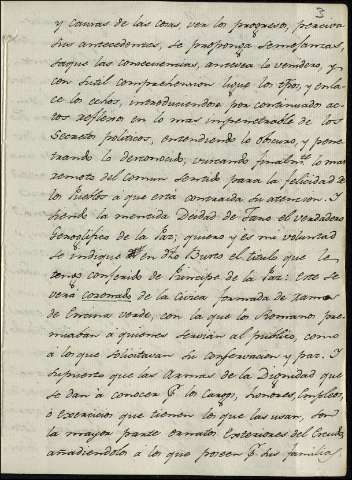 3
y causas de las cosas, ver los progresos, perciva
sus antecedencias, se proponga semejanzas,
saque las consecuencias, antevea lo venidero, y
con sutil comprehension ligue los tpos, y enla-
ce los echos, introduciendose por continuado ac-
tos reflexos en lo mas impenetrable de los
Secretos politicos, entendiendo lo obscuro, y pene-
trando lo desconocido, cruzando finalmte lo mas
remoto del comun sentido para la felicidad de
los Pueblos a que está contraida su atencion. Y
siendo la mentida Deidad de Jano el verdadero
Geroglifico de la Paz; quiero y es mi voluntad
se indique en dho Busto el titulo que le
tengo conferido de Principe de la Paz: este se
verá coronado de la Civica formada de ramos
de Encina verde, con la que los Romanos pre-
miaban a quienes servian al publico, como
á los que solicitavan su conservacion y paz. Y
supuesto que las Armas de la Dignidad que
se dan á conocer pr los Cargos, honores, Empleos,
ó exercicios que tienen los que las usan, son
la mayor parte ornatos exteriores del Escudo,
añadiendolos á los que poseen pr sus familias